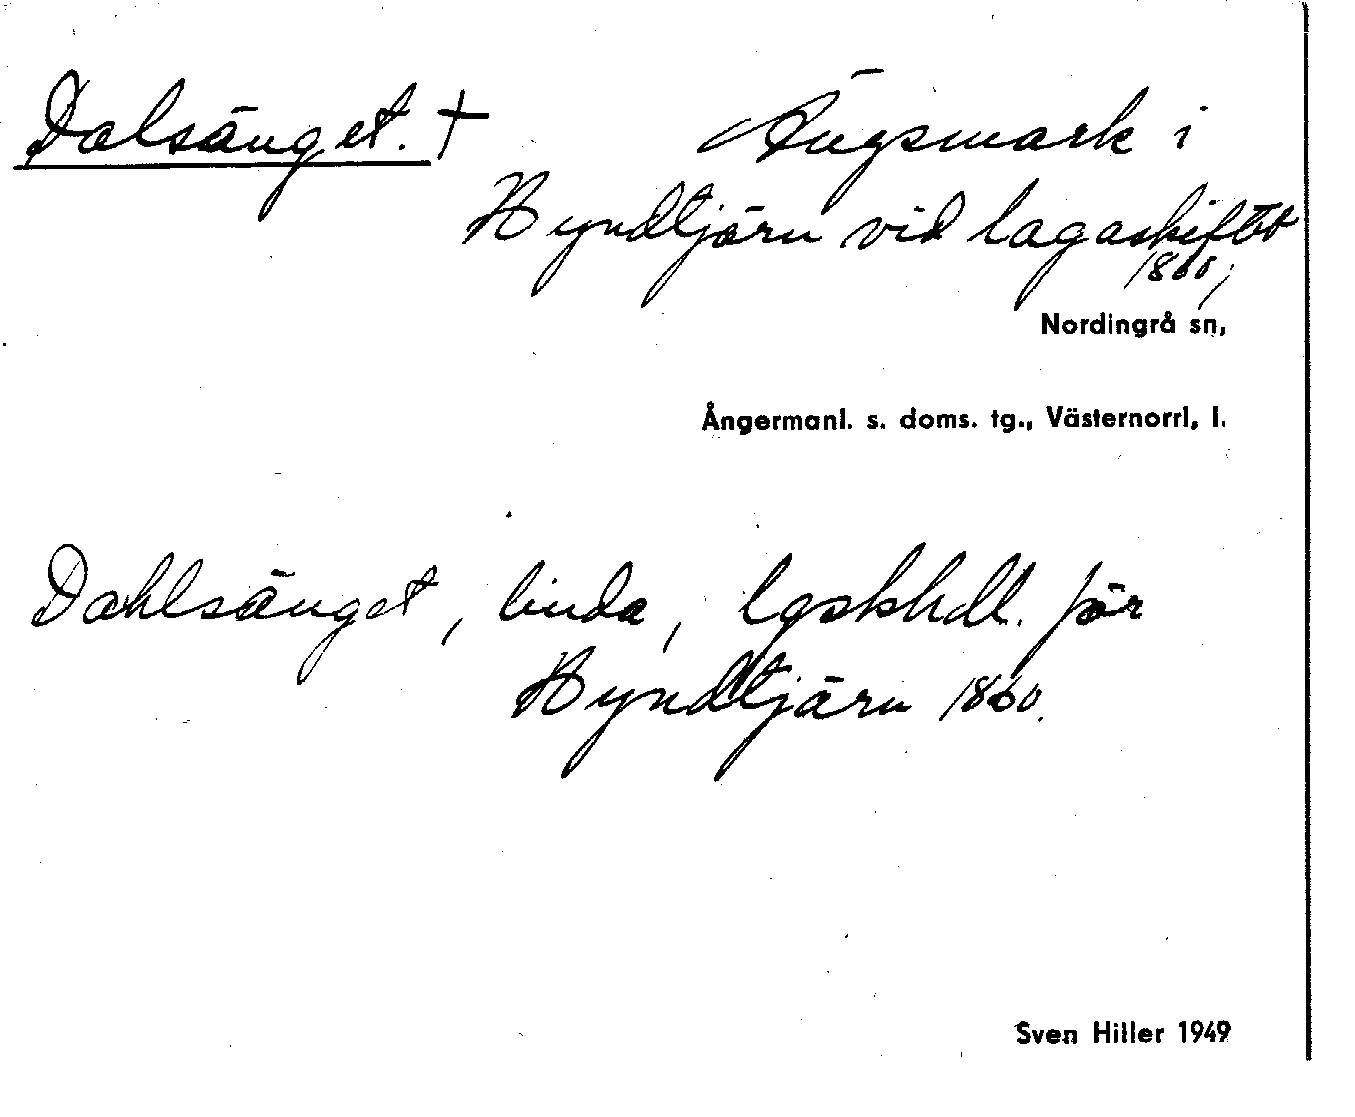 Dalsänget. † Ängsmark i
Hyndtjärn vid lagaskiftet
1860;
Nordingrå sn,
Ångermanl. s. doms. tg., Västernorrl, l.
Dahlsänget, linda, lgskhdl. för
Hyndtjärn 1860.
Sven Hiller 1949